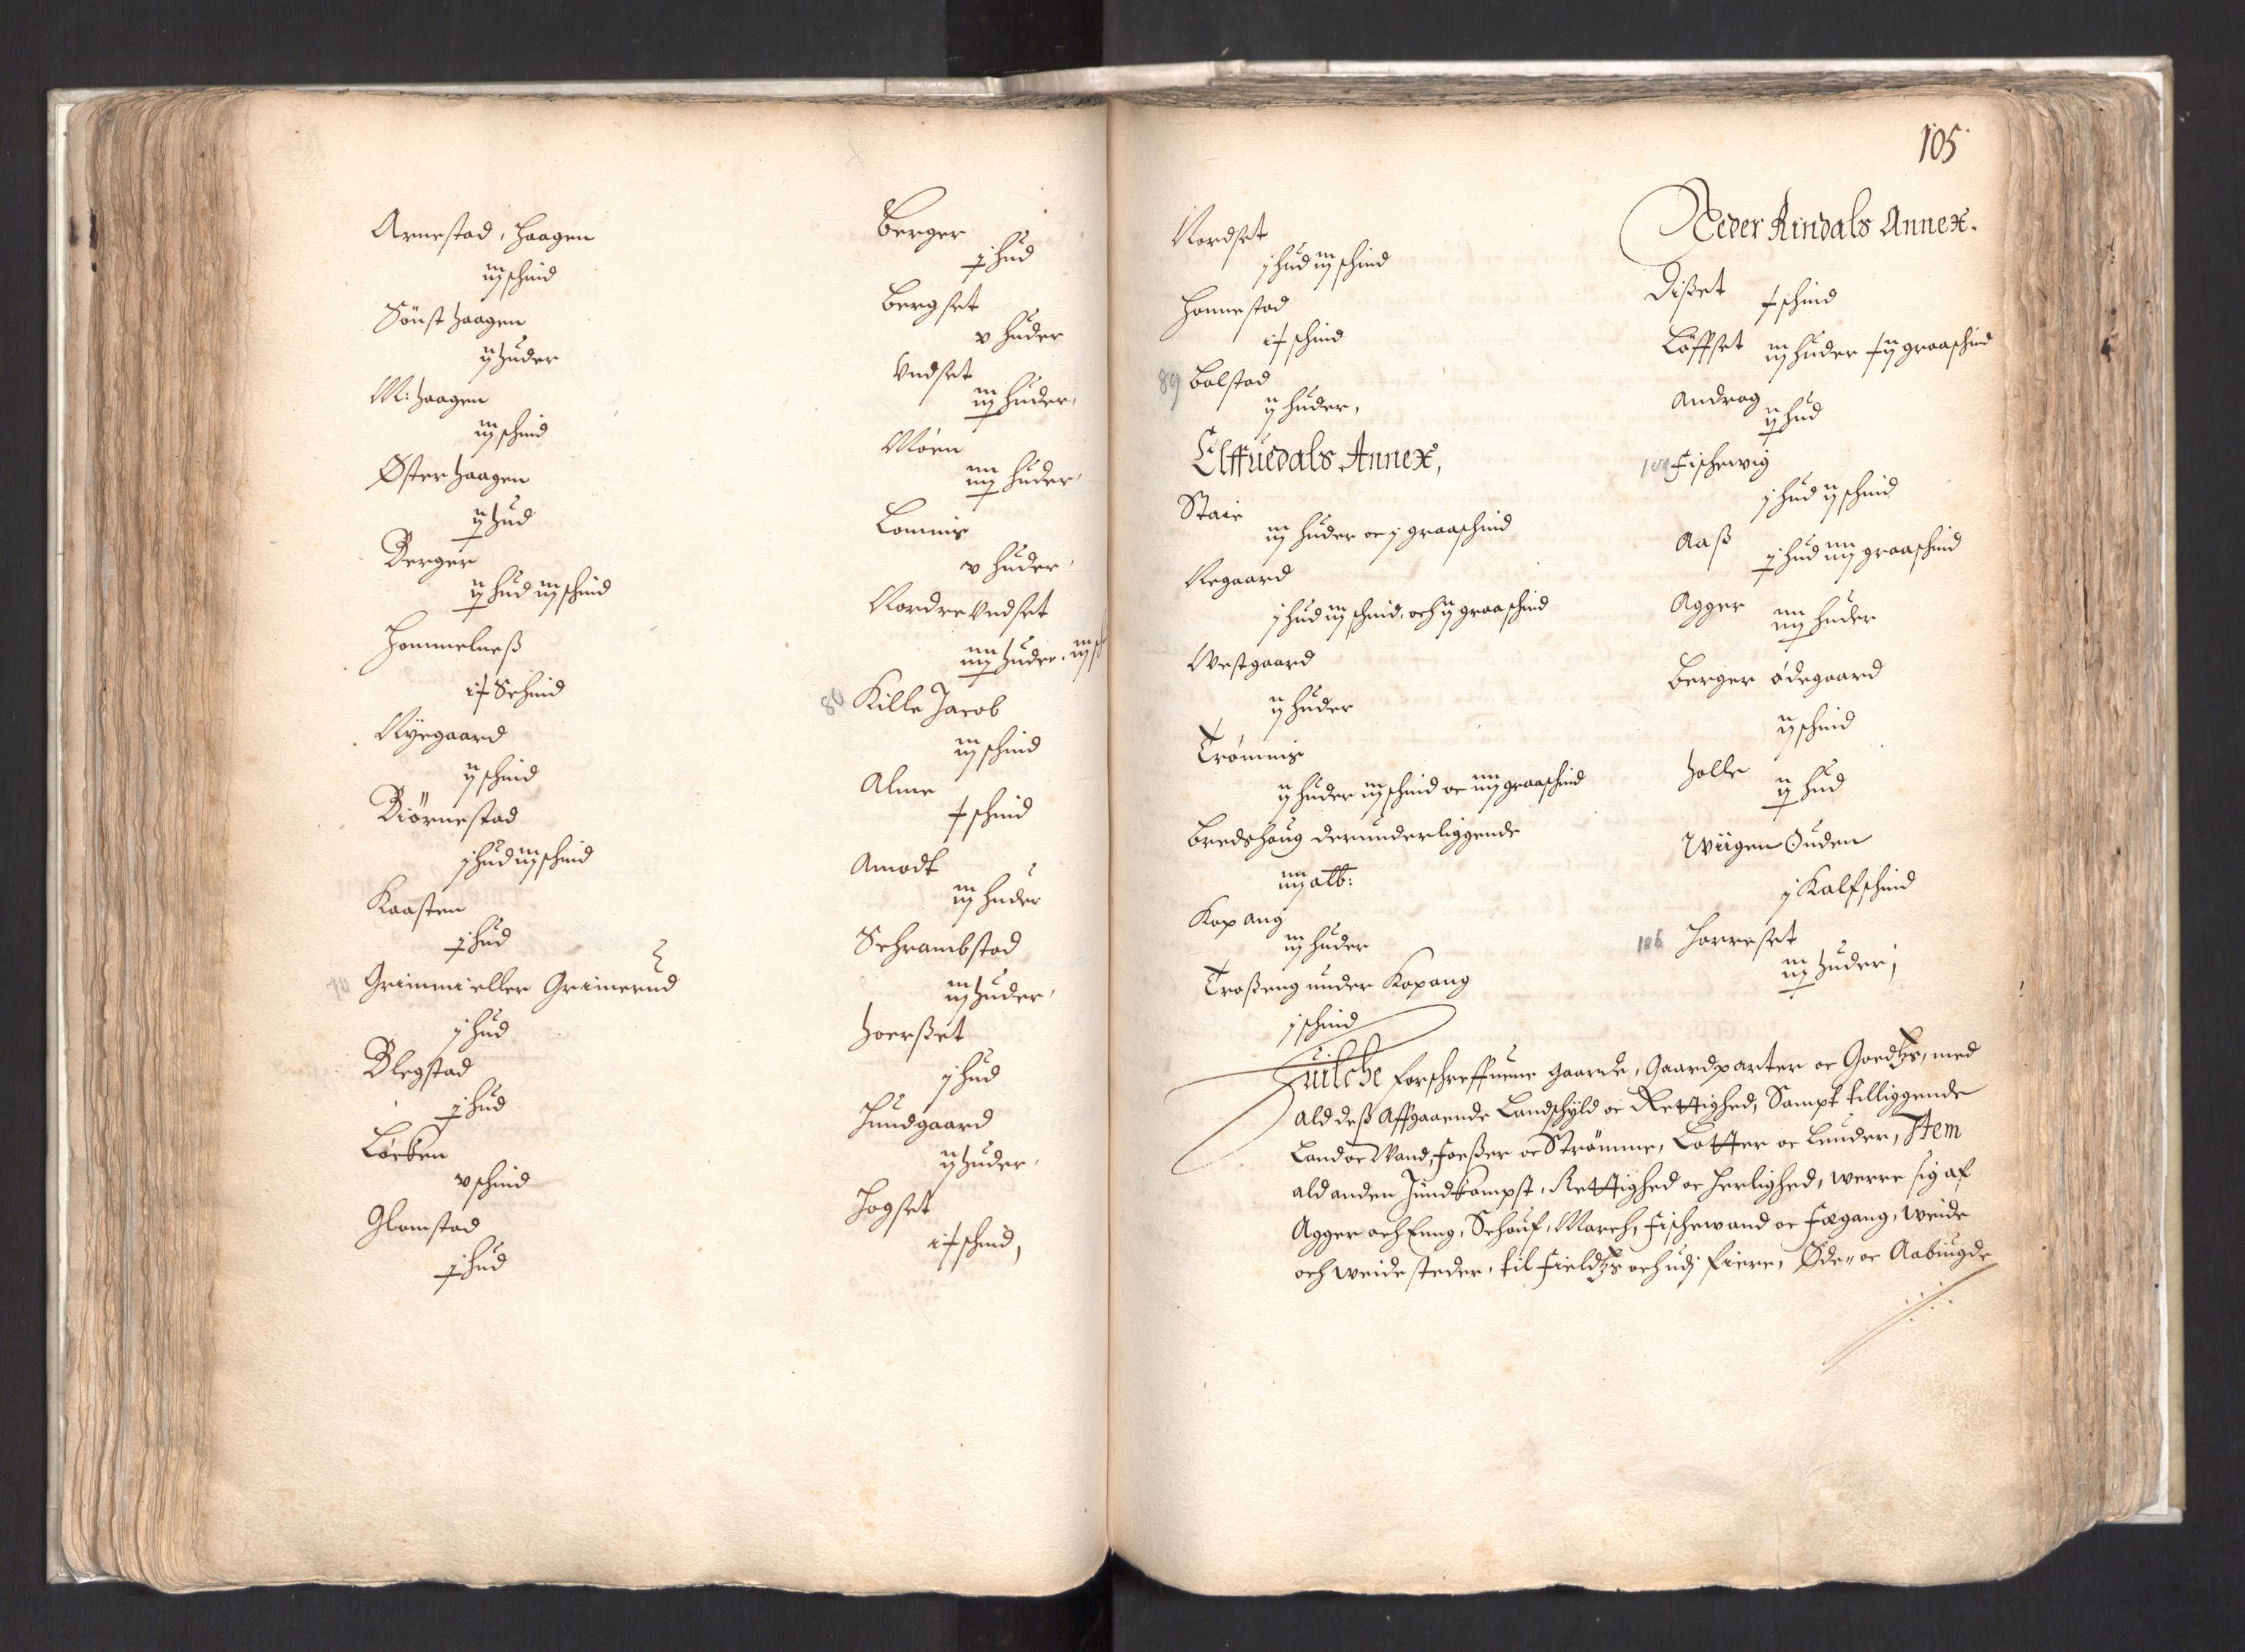 Arnestad, Haagen
iij schind
Sönst Haagen
ij Huder
M: Haagen
iij schind
Øster Haagen
ij Hud
Berger
ij Hud iij schind
Hommelneß
ix Schind
Nÿegaard
ij schind
Biörnestad
j Hud iij schind
Kaasten
j Hud
Grimmi eller Grimerud
j Hud
Blegstad
j Hud
Löcken
v schind
Glomstad
j Hud
Berger
j Hud
Bergset
v Huder
Vndset
iij Huder,
Möen
iiij Huder,
Lomnis
v Huder,
Nordre Vndset
iiij Huder, iij
80 Kille Jacob
iij schind
Alme
x schind
Amodt
iij Huder
Schrambstad
iij Huder,
Hoerßet
j Hud
Hundgaard
ij Huder,
Hogset
ix schind,
105
Nordset
j Hud iij schind
Honnestad
ix schind
89 Bolstad
ij Huder,
Elffuedals Annex,
Staie
iij Huder oc j graaschind
Negaard
j Hud iij schind, och ij graaschind
Westgaard
ij Huder
Trömnis
ij Huder iij schind oc iiij graaschind
Bredshaug derunderliggende
iiij alb:
Kopang
iij Huder
Troßeng under Kopang
j schind
Neder Rindals Annex.
Dißet
x schind
Löffset iij Huder x ij graaschind
Androg
ij Hud
Fischewig
j Hud ij schind
Aaß
j Hud iiij graaschind
Agger
iiij Huder
Berger ödegaard
ij schind
Holle
ij Hud
Wiigen Ouden
j Kalfschind
106 Horreset
iij Huder,
Huilche forschreffuene gaarde, Gaardparter oc Goedtzs, med
ald deß Affgaaende Landschÿld oc Rettighed, Sampt tilliggende
Land oc Wand, Foeßer oc Strömme, Lotter oc Lunder, Item
ald anden Jndkompst, Rettighed oc Herlighed, werre sig af
Agger och Enng, Schouf, March, Fischewand oc Fægang, weide
och weide steder, til Fieldtzs och udj Fiere, Øde, oc Aabÿgde